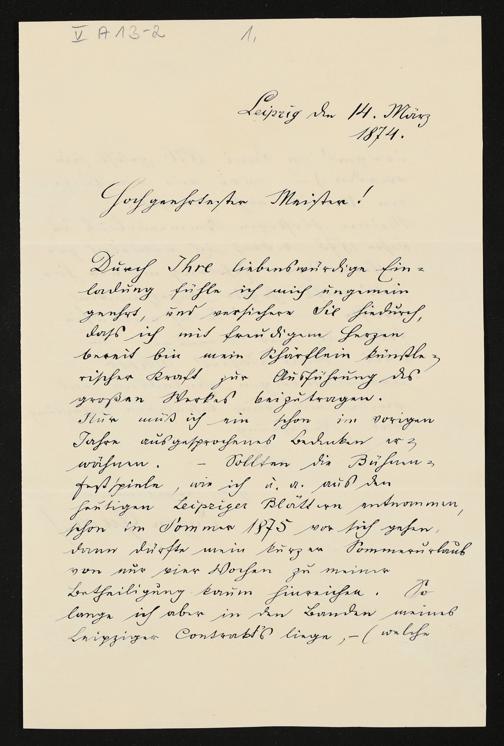 V A 13-2 1,
Leipzig den 14. März
1874.
Hochgeehrtester Meister!
Durch Ihre liebenswürdige Ein=
ladung fühle ich mich ungemein
geehrt, und versichere Sie hiedurch,
dass ich mit freudigem Herzen
bereit bin mein Schärflein künstle=
rischer Kraft zur Ausführung des
großen Werkes beizutragen.
Nur muß ich ein schon im vorigen
Jahre ausgesprochenes Bedenken er=
wähnen. – Sollten die Bühnen=
festspiele, wie ich u. a. aus den
heutigen Leipziger Blättern entnommen,
schon im Sommer 1875 vor sich gehen,
dann dürfte mein kurzer Sommerurlaub
von nur vier Wochen zu meiner
Betheiligung kaum hinreichen. So
lange ich aber in den Banden meines
Leipziger Contrakts liege, – (welche